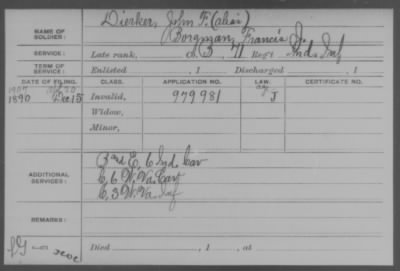 Dierker, John F. (alias)
NAME OF SOLDIER: Borgman, Francis J.
SERVICE: Late rank, 3, 71 Reg't Ind. Inf
TERM OF SERVICE: Enlisted , 1 Discharged , 1
DATE OF FILING. CLASS. APPLICATION NO. LAW. CERTIFICATE NO.
1907
1890 Dec 15 Invalid, 979981 J
Widow,
Minor,
ADDITIONAL SERVICES: Bard E, 6 Ind. Cav
E, 6 W. Va. Cav
E, 3 W. Va. Inf
REMARKS:
Died , 1 , at